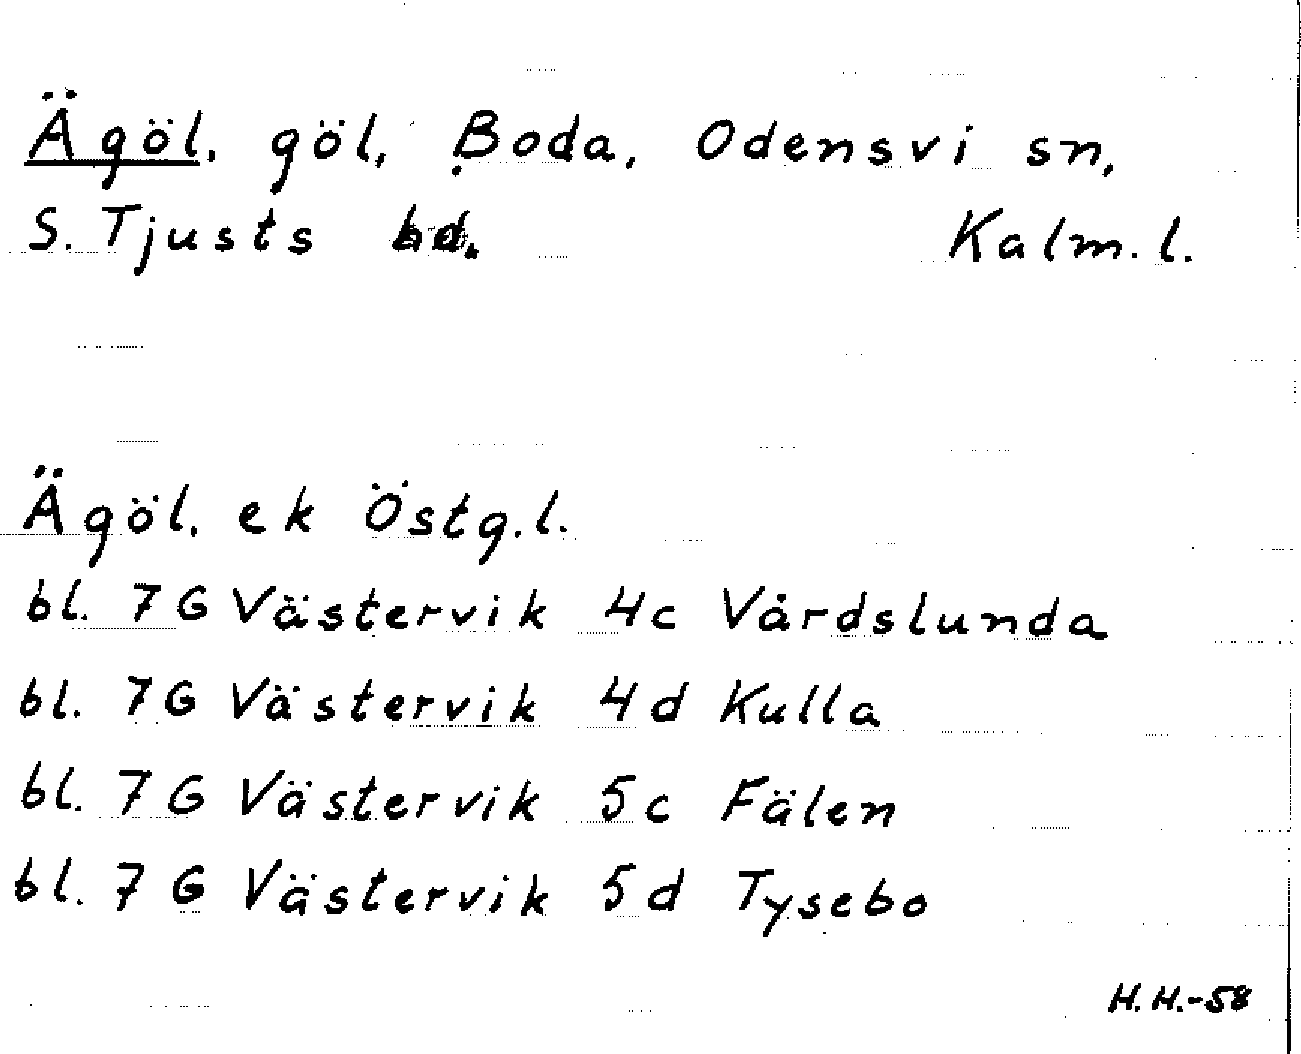 Ägöl. göl, Boda, Odensvi sn,
S. Tjusts hd. Kalm. l.
Ägöl. ek Östg. l.
bl. 7G Västervik 4c Vårdslunda
bl. 7G Västervik 4d Kulla
bl. 7G Västervik 5c Fälen
bl. 7G Västervik 5d Tysebo
H.H.-58